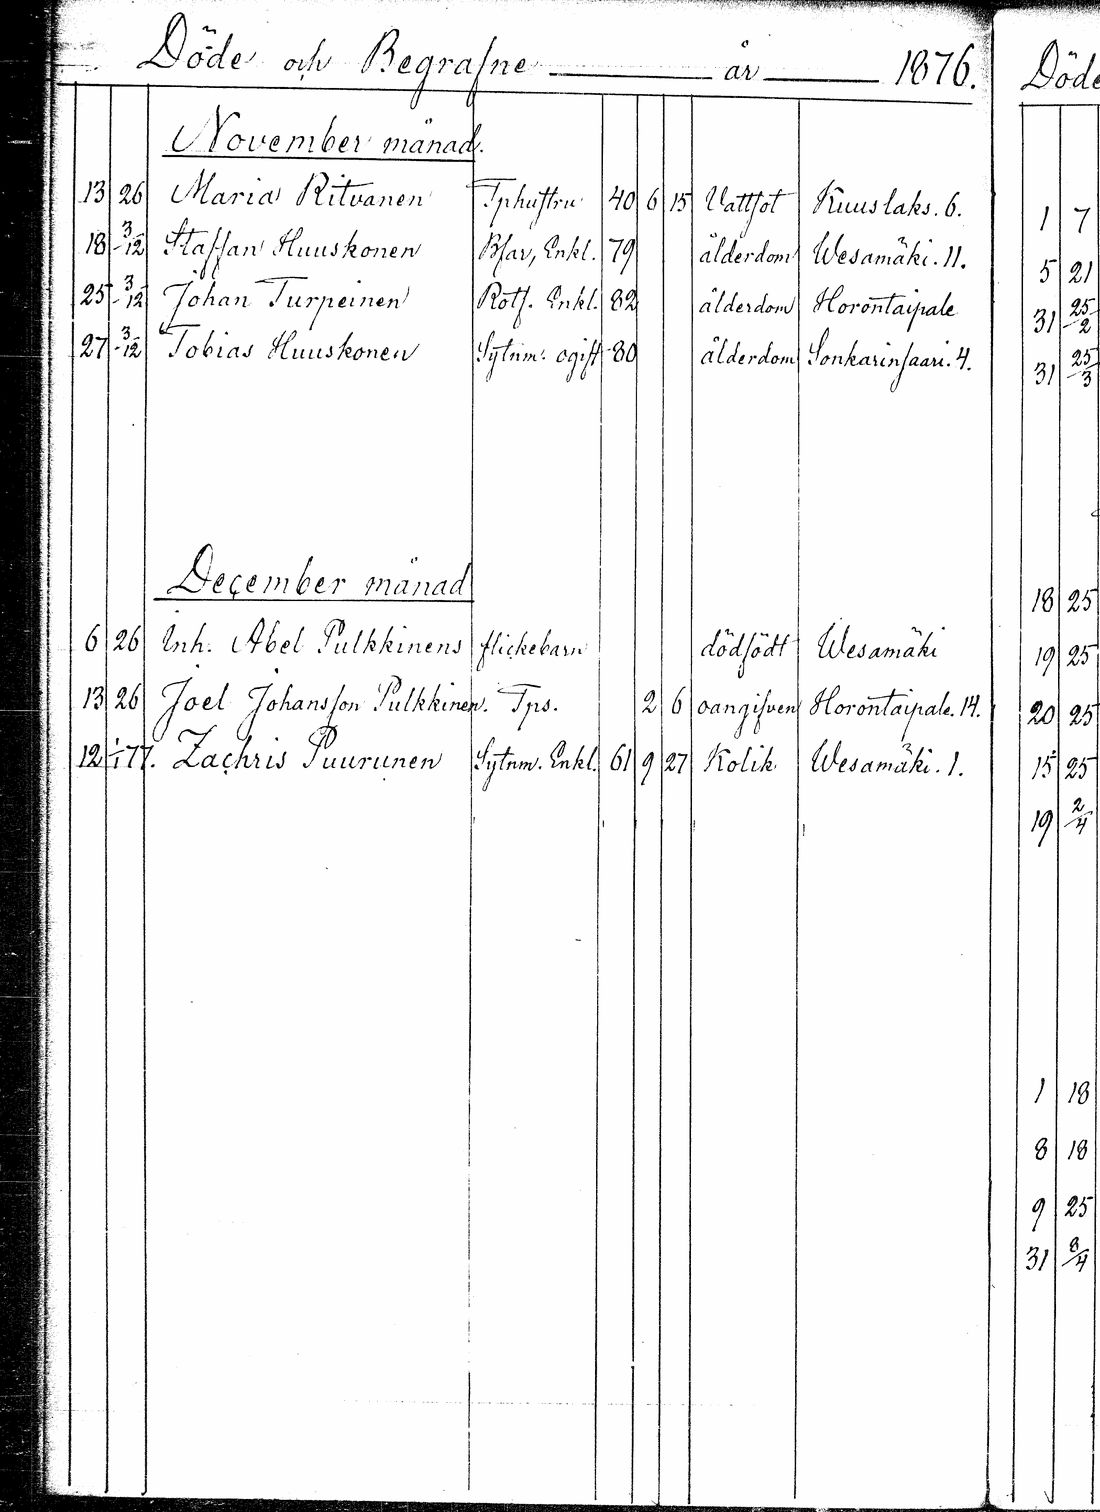 Döde och Begrafne år 1876.
November månad.
13 26 Maria Ritvanen Tphustru 40 6 15 Vattsot Kuuslaks. 6.
18 3/12 Staffan Huuskonen Bfar, Enkl. 79 ålderdom Wesamäki. 11.
25 3/12 Johan Turpeinen Rotf. Enkl. 82 ålderdom Horontaipale
27 3/12 Tobias Huuskonen Sytnm. ogift 80 ålderdom Sonkarinsaari. 4.
December månad
6 26 Inh. Abel Pulkkinens flickebarn dödfödt Wesamäki
13 26 Joel Johansson Pulkkinen. Tps. 2 6 oangifven Horontaipale. 14.
12 1/1 77. Zachris Puurunen Sytnm. Enkl. 61 9 27 Kolik Wesamäki. 1.
Döde
1 7
5 21
31 25/2
31 25/3
18 25
19 25
20 25
15 25
19 2/4
1 18
8 18
9 25
31 8/4